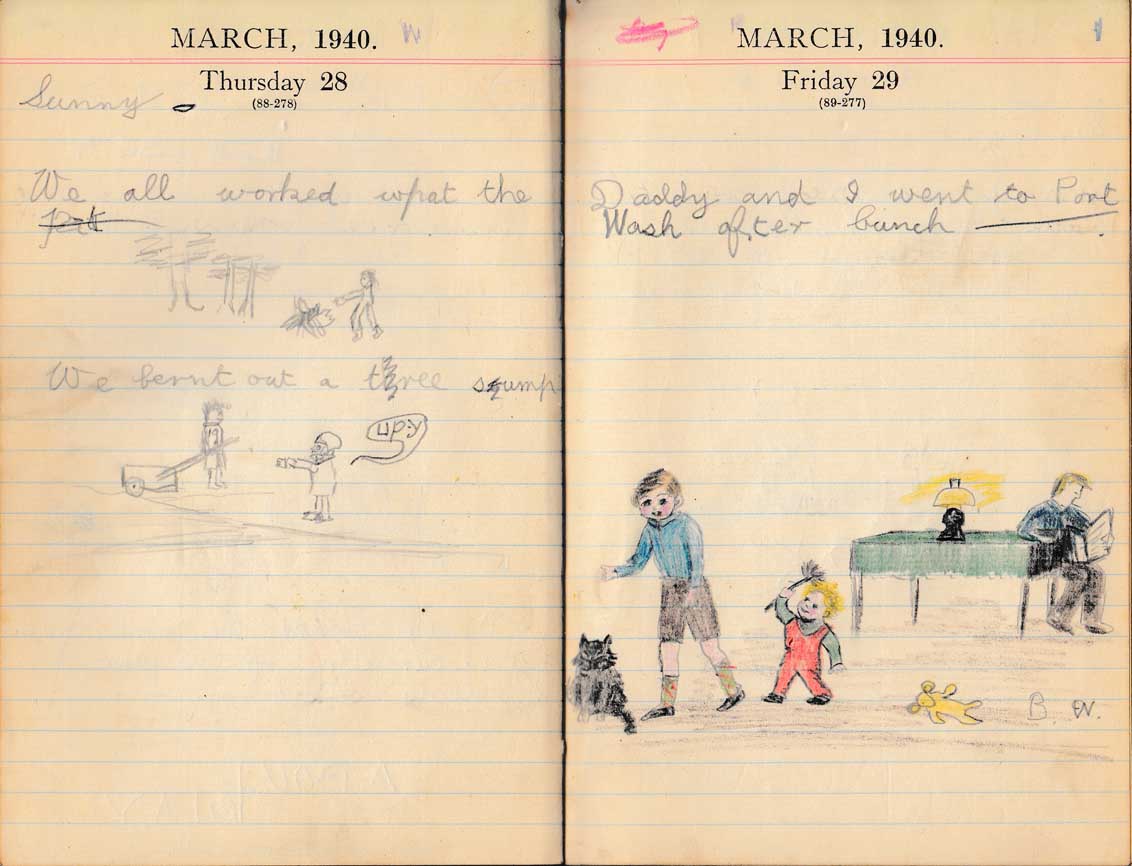 MARCH, 1940.
Thursday 28
(88-278)
Sunny
We all worked wpat the
pit
We bernt out a tree stump
up:y
MARCH, 1940.
Friday 29
(89-277)
Daddy and I went to Port
Wash after bunch
B. W.